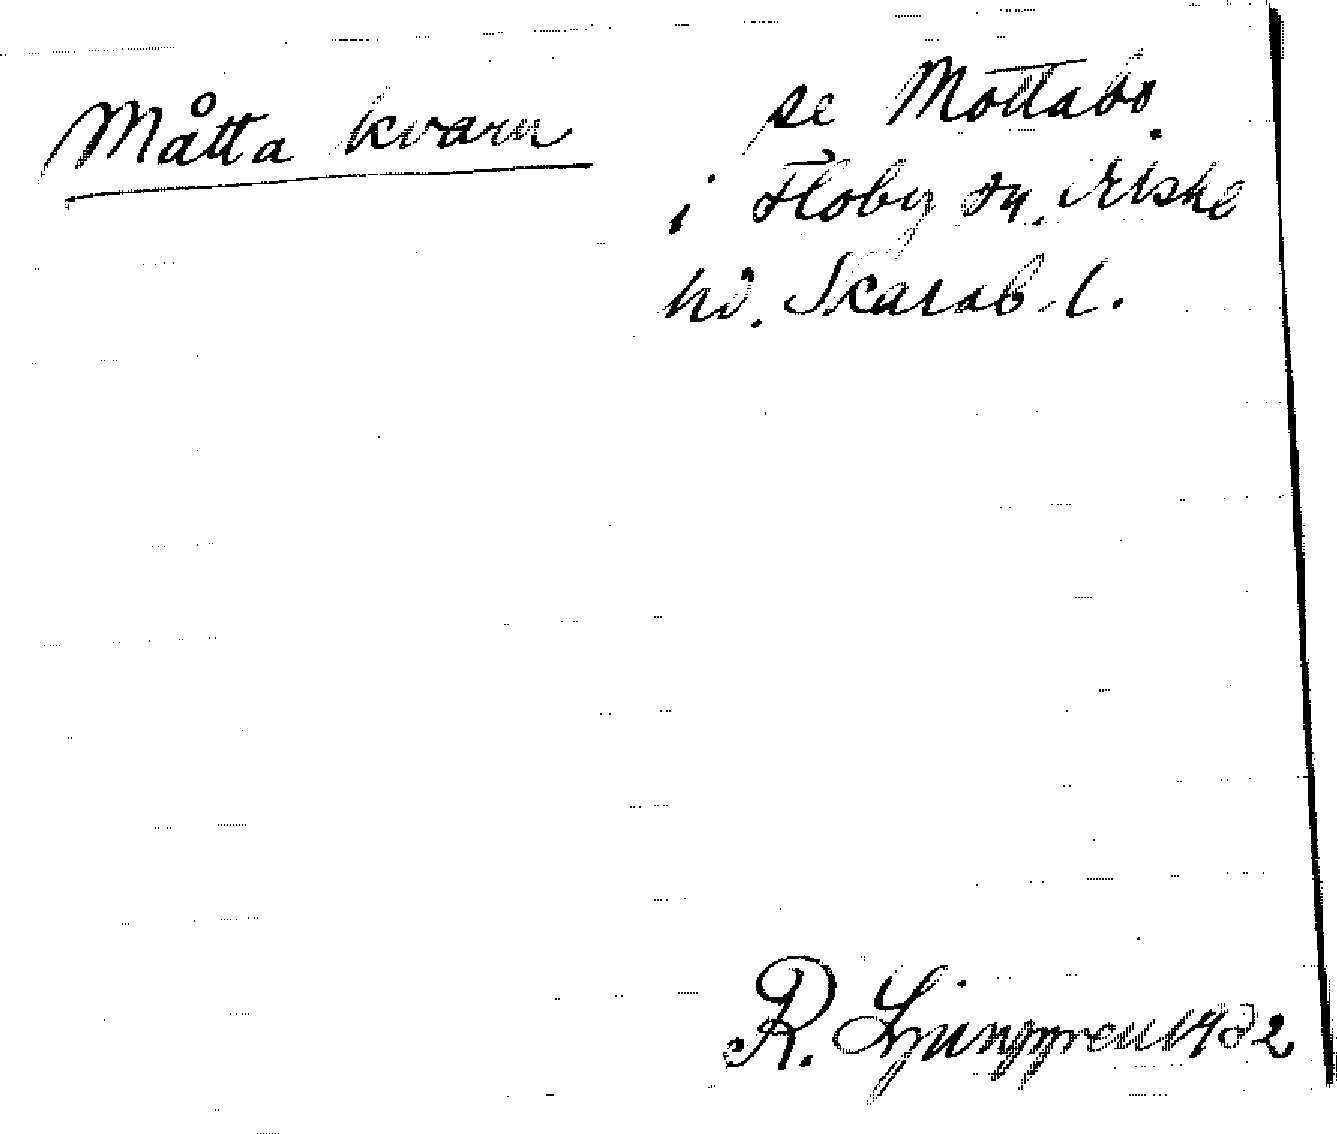 Måtta kvarn
se Mottabo
i Floby sn. Vilske
hd. Skarab. l.
R. Ljunggren